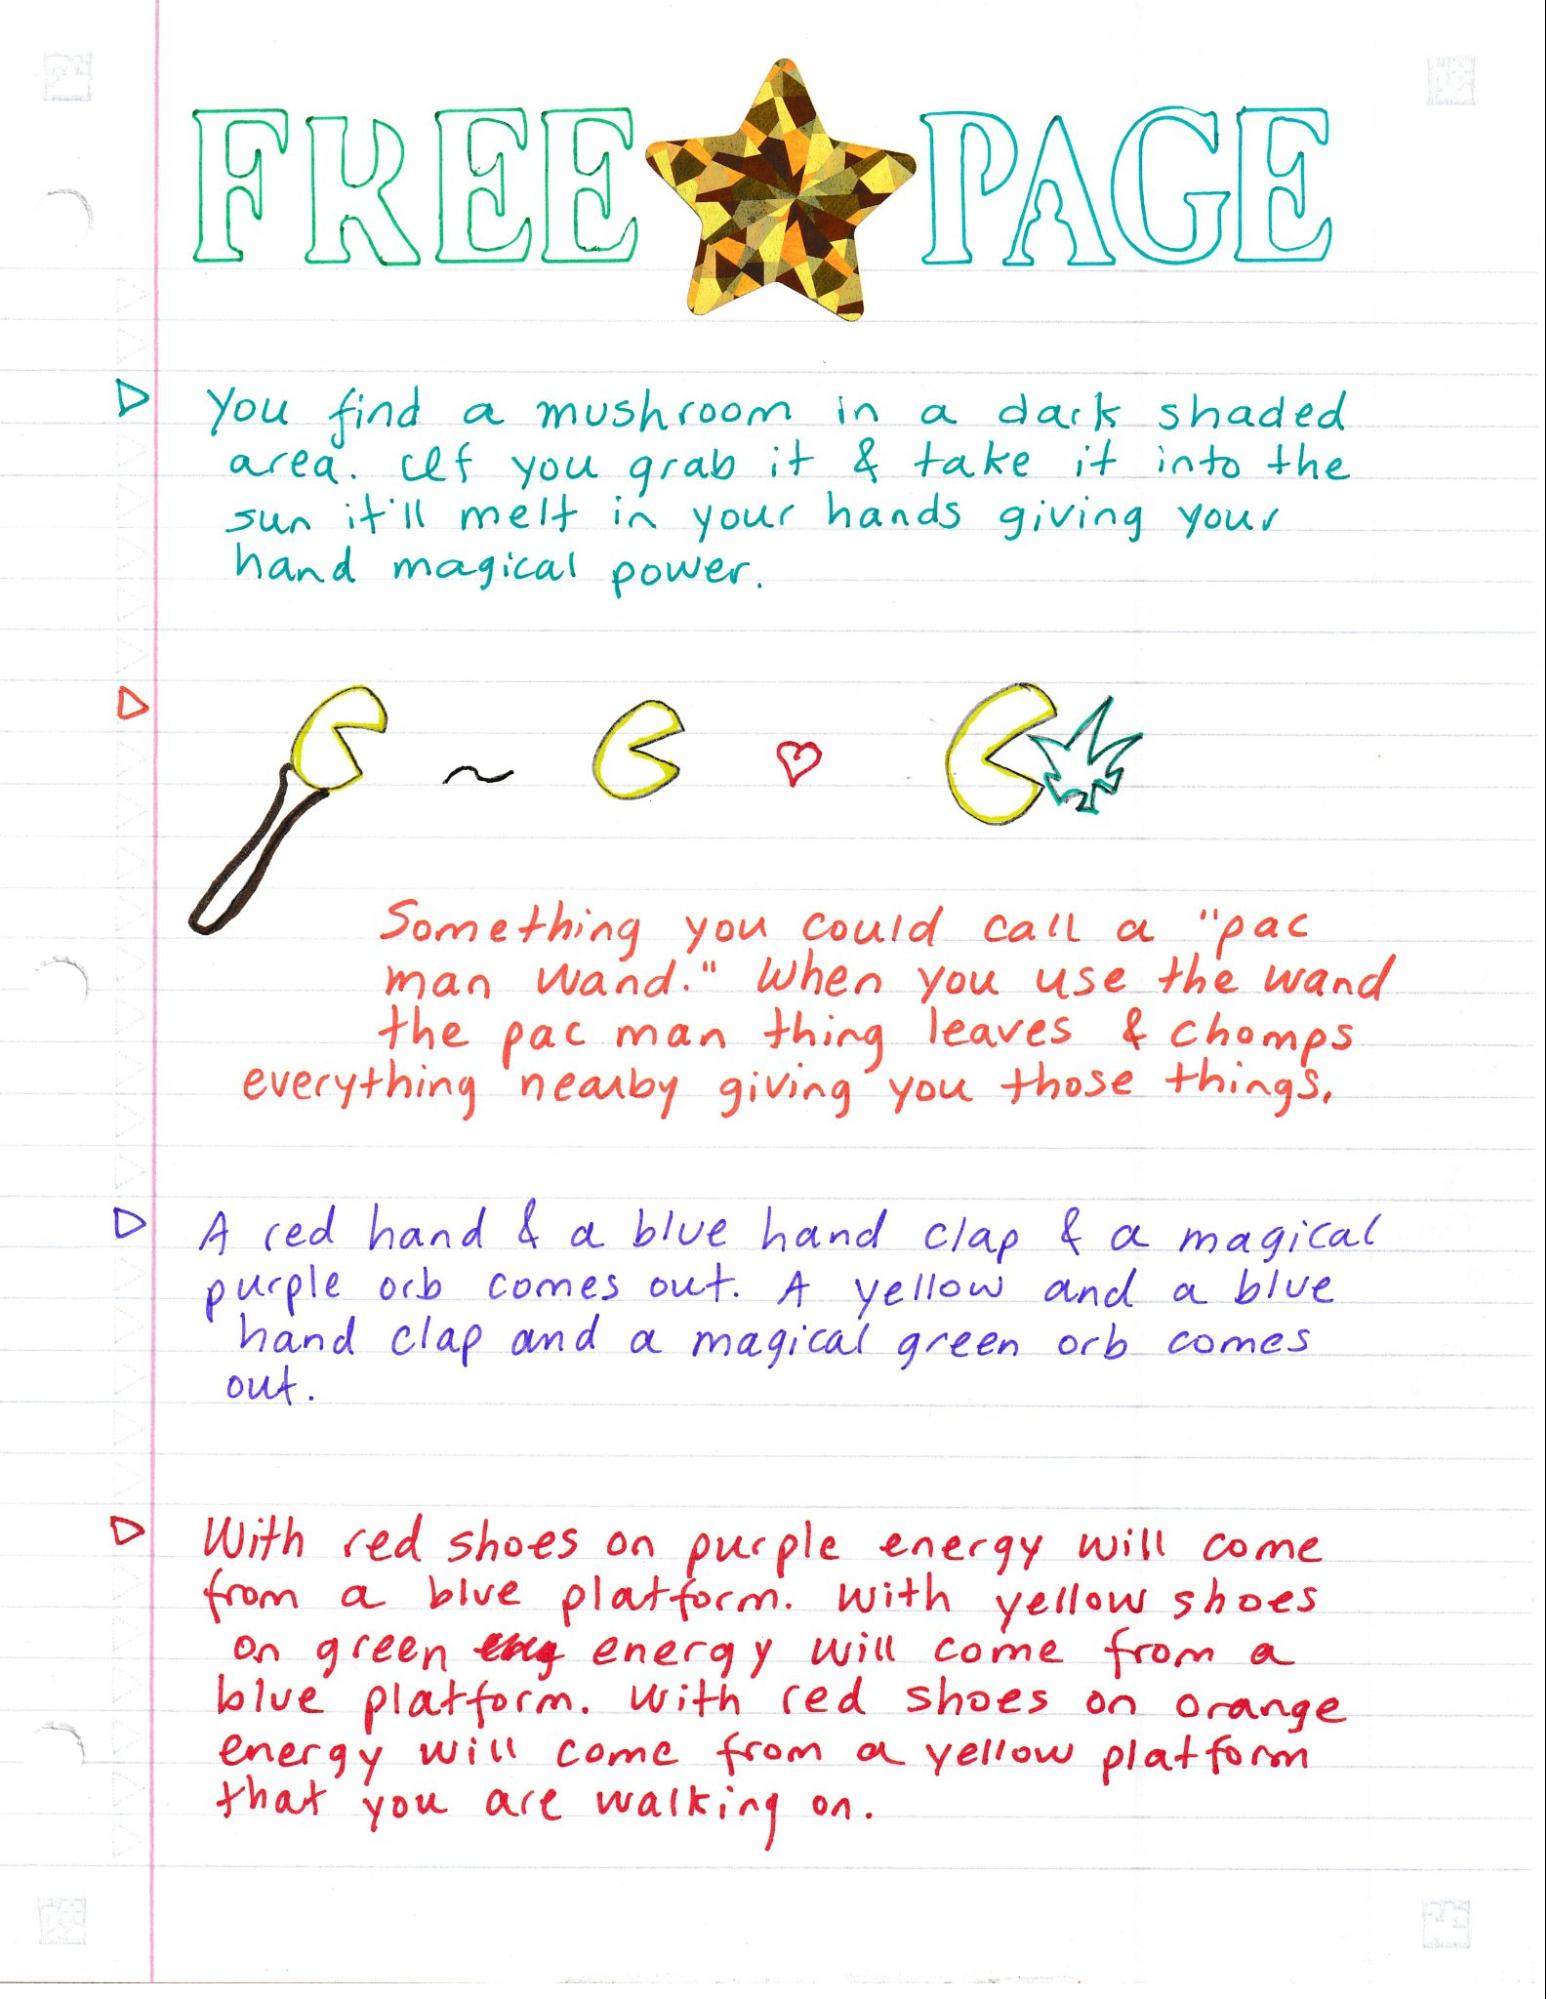 FREE PAGE
You find a mushroom in a dark shaded
area. If you grab it & take it into the
sun it'll melt in your hands giving your
hand magical power.
Something you could call a "pac
man wand." When you use the wand
the pac man thing leaves & chomps
everything nearby giving you those things.
A red hand & a blue hand clap & a magical
purple orb comes out. A yellow and a blue
hand clap and a magical green orb comes
out.
With red shoes on purple energy will come
from a blue platform. With yellow shoes
on green energy will come from a
blue platform. With red shoes on orange
energy will come from a yellow platform
that you are walking on.